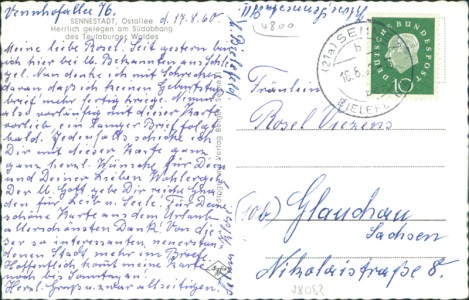 Vennhofallee 76.
SENNESTADT, Ostallee
Herrlich gelegen am Südabhang
des Teutoburger Waldes
d. 17.8.60.
Meine liebe Rosel. Seit gestern bin
ich hier bei Bekannten aus
Nun denke ich mit Schrecken
daran daß ich keinen Geburtstags
brief mehr fertig kriege. Nimm
also vorläufig mit dieser Karte
vorlieb, ein langer Brief folgt
bald. Jedenfalls schicke ich
Dir mit dieser Karte ganz
ganz herzl. Wünsche für Dein
und Deiner Lieben Wohlergehen.
Der lb. Gott gebe Dir reiche Gnaden
für Leib u. Seele! Für Deine
schöne Karte aus dem Urlaub
allerschönsten Dank! Von die
ser so interessanten neuerstan
denen Stadt, mehr im Brief.
Hoffentlich kommt meine Karte
noch bis Sonntag an!
Herzl. Grüße
4800
(21a) SENNE
BIELEFELD
DEUTSCHE BUNDESPOST
10
Fräulein
Rosel
(10b) Glauchau
Sachsen
Nikolaistraße 8.